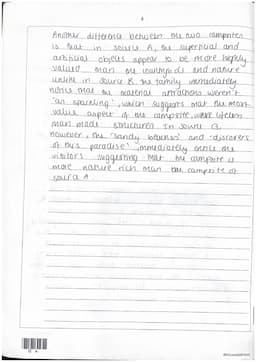 4
Another difference between the two campsites
is that in source A, the superficial and
artificial objects appear to be more highly
valued than the countryside and nature
unlike in source B. The family immediately
notice that the material attractions weren't
'an sparkling', which suggests that the most
value aspect of the campsite, were lifeless
man made structures. In source B,
however, the 'sandy beaches' and 'discoverers
of this paradise' immediately entice the
visitors suggesting that the campsite is
more nature rich than the campsite of
source A.